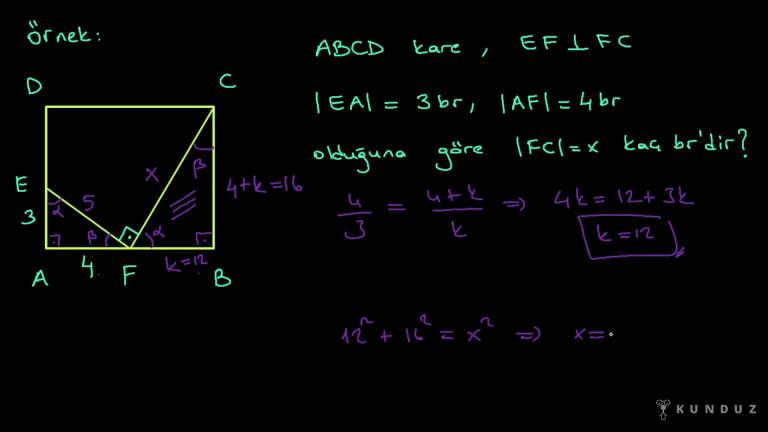 Örnek:
ABCD kare, EF⊥FC
|EA| = 3br, |AF| = 4br
olduğuna göre |FC| = x kaç br'dir?
D C
x β
4+k=16
E α 5
3
β α
A 4 F k=12 B
4/3 = 4+k/k ⇒ 4k = 12+3k
k=12
12² + 16² = x² ⇒ x=
KUNDUZ